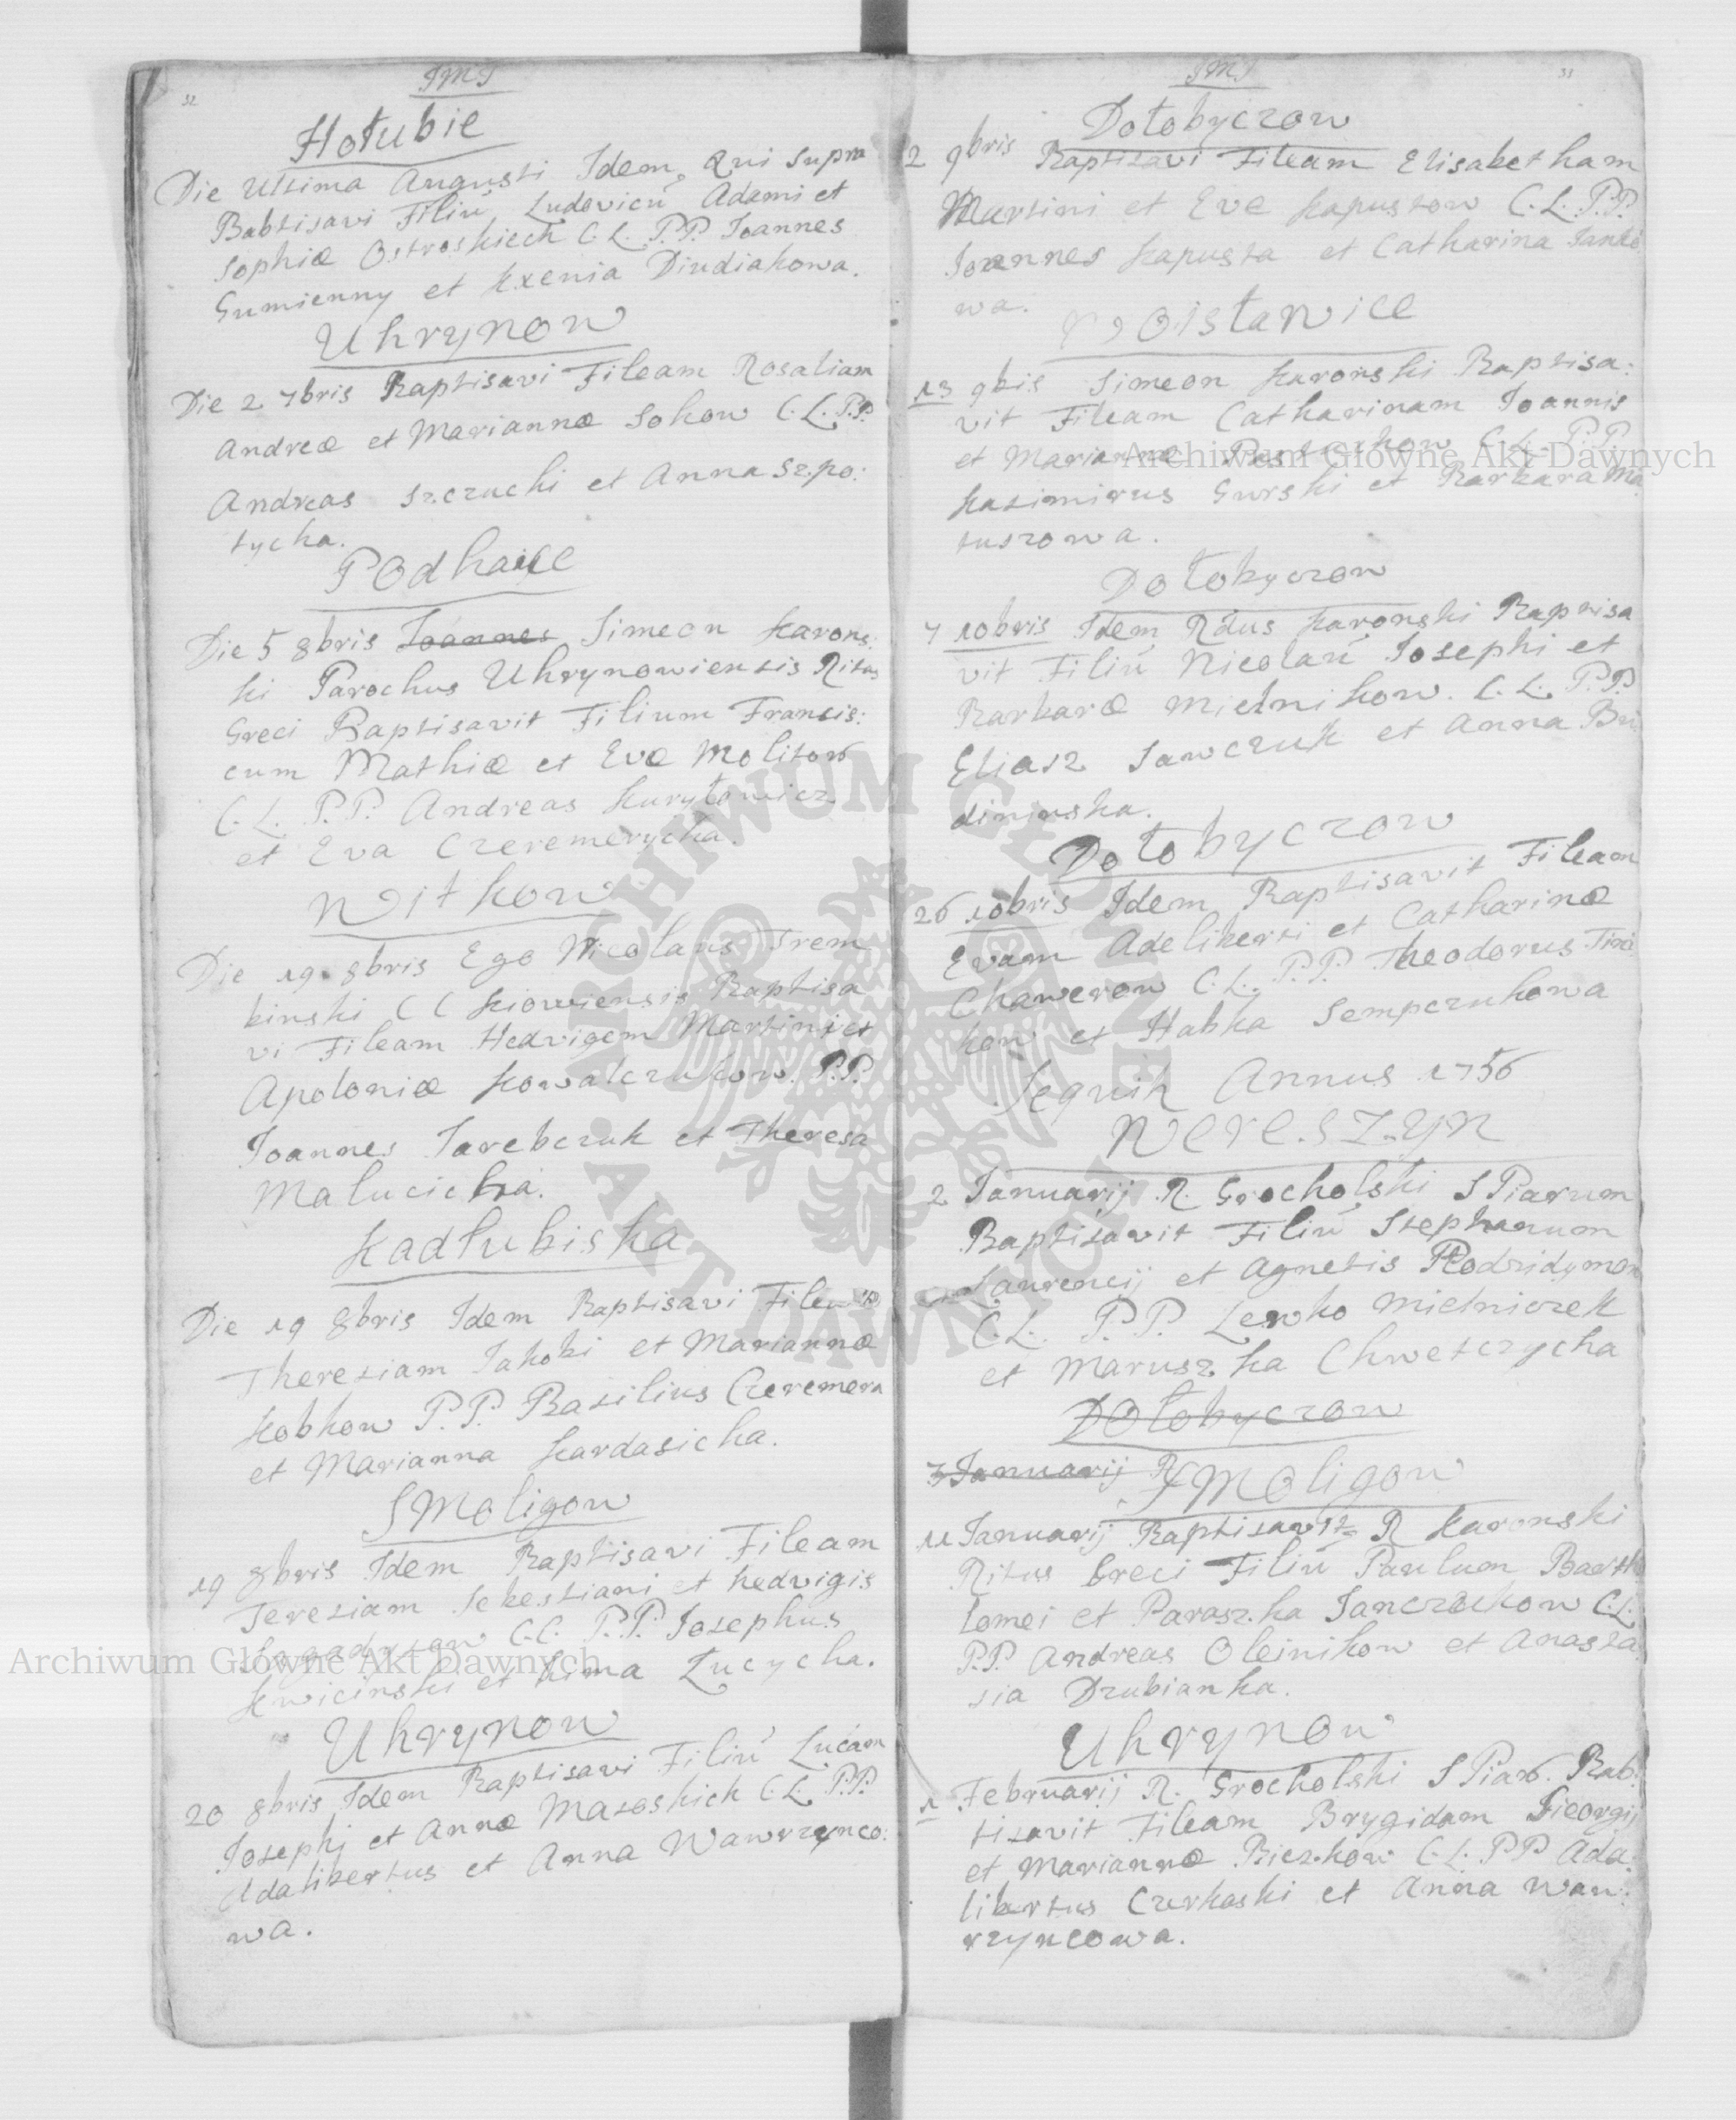 32
JMJ
Hołubie
Die Ultima Augusti Idem Qui Supra
Babtisavi Filiū Ludovicū Adami et
Sophiæ Ostroskiech C. L. P.P. Joannes
Gumienny et Kxenia Diudiakowa.
Uhrynow
Die 2 7bris Baptisavi Fileam Rosaliam
Andreæ et Mariannæ Sokow C. L. P.P.
Andreas Szczucki et Anna Szpo:
tycha.
Podhaice
Die 5 8bris Joannes Simeon Karons:
ki Parochus Uhrynowiensis Ritus
Greci Baptisavit Filium Francis:
cum Mathiæ et Evæ Molitow
C. L. P.P. Andreas Kuryłowicz
et Eva Czeremerycha.
Witkow
Die 19 8bris Ego Nicolaus Trem
binski C C Kiowiensis Baptisa
vi Fileam Hedvigem Martini et
Apoloniæ Kowalczukow. P.P.
Joannes Jarebczuk et Theresa
Malucicha.
Kadłubiska
Die 19 8bris Idem Baptisavi Fileam
Theresiam Jakobi et Mariannæ
Kobkow P.P. Basilius Czeremera
et Marianna Kardasicha.
Smoligow
19 8bris Idem Baptisavi Fileam
Teresiam Sebestiani et Hedvigis
C.C. P.P. Josephus
Kwicinski et Kima Łucycha.
Uhrynow
20 8bris Idem Baptisavi Filiū Lucam
Josephi et Annæ Masoskich C. L. P.P.
Adalibertus et Anna Wawrzynco:
wa.
33
JMJ
Dołobyczow
2 9bris Baptisavi Fileam Elisabetham
Martini et Eve Kapustow C. L. P.P.
Joannes Kapusta et Catharina Janko
wa.
Woisławice
13 9bis Simeon Karonski Baptisa:
vit Fileam Catharinam Joannis
et Mariannæ C. L. P.P.
Kasimirus Gurski et Barbara Ma
tuszowa.
Dołobyczow
7 10bris Idem Rdus Karonski Baptisa
vit Filiū Nicolaū Josephi et
Barbaræ Mielnikow. C. L. P.P.
Eliasz Sawczuk et Anna Bu
dininska.
Dołobyczow
26 10bris Idem Baptisavit Fileam
Evam Adeliberti et Catharinæ
Chaweron C. L. P.P. Theodorus Timi
kow et Habka Sempczukowa
Sequit Annus 1756
Wereszyn
2 Januarij R. Grocholski S Piarum
Baptisavit Filiū Stephanum
Laurencij et Agnetis Podzidymow
C. L. P.P. Lewko Mielniczek
et Maruszka Chwesczycha
Dołobyczow
7 Januarij R
Smoligow
11 Januarij Baptisavit R Karonski
Ritus Greci Filiū Paulum Bartho
lomei et Paraszka Janczukow C.L.
P.P. Andreas Oleinikow et Anasta
sia Dzubianka.
Uhrynow
1 Februarij R. Grocholski S Piar. Bab:
tisavit Fileam Brygidam Gieorgij
et Mariannæ Bieszkow C. L. P P Ada:
libertus Czerkaski et Anna Waw:
rzyncowa.
Archiwum Główne Akt Dawnych
Archiwum Główne Akt Dawnych
ARCHIWUM GŁÓWNE AKT DAWNYCH